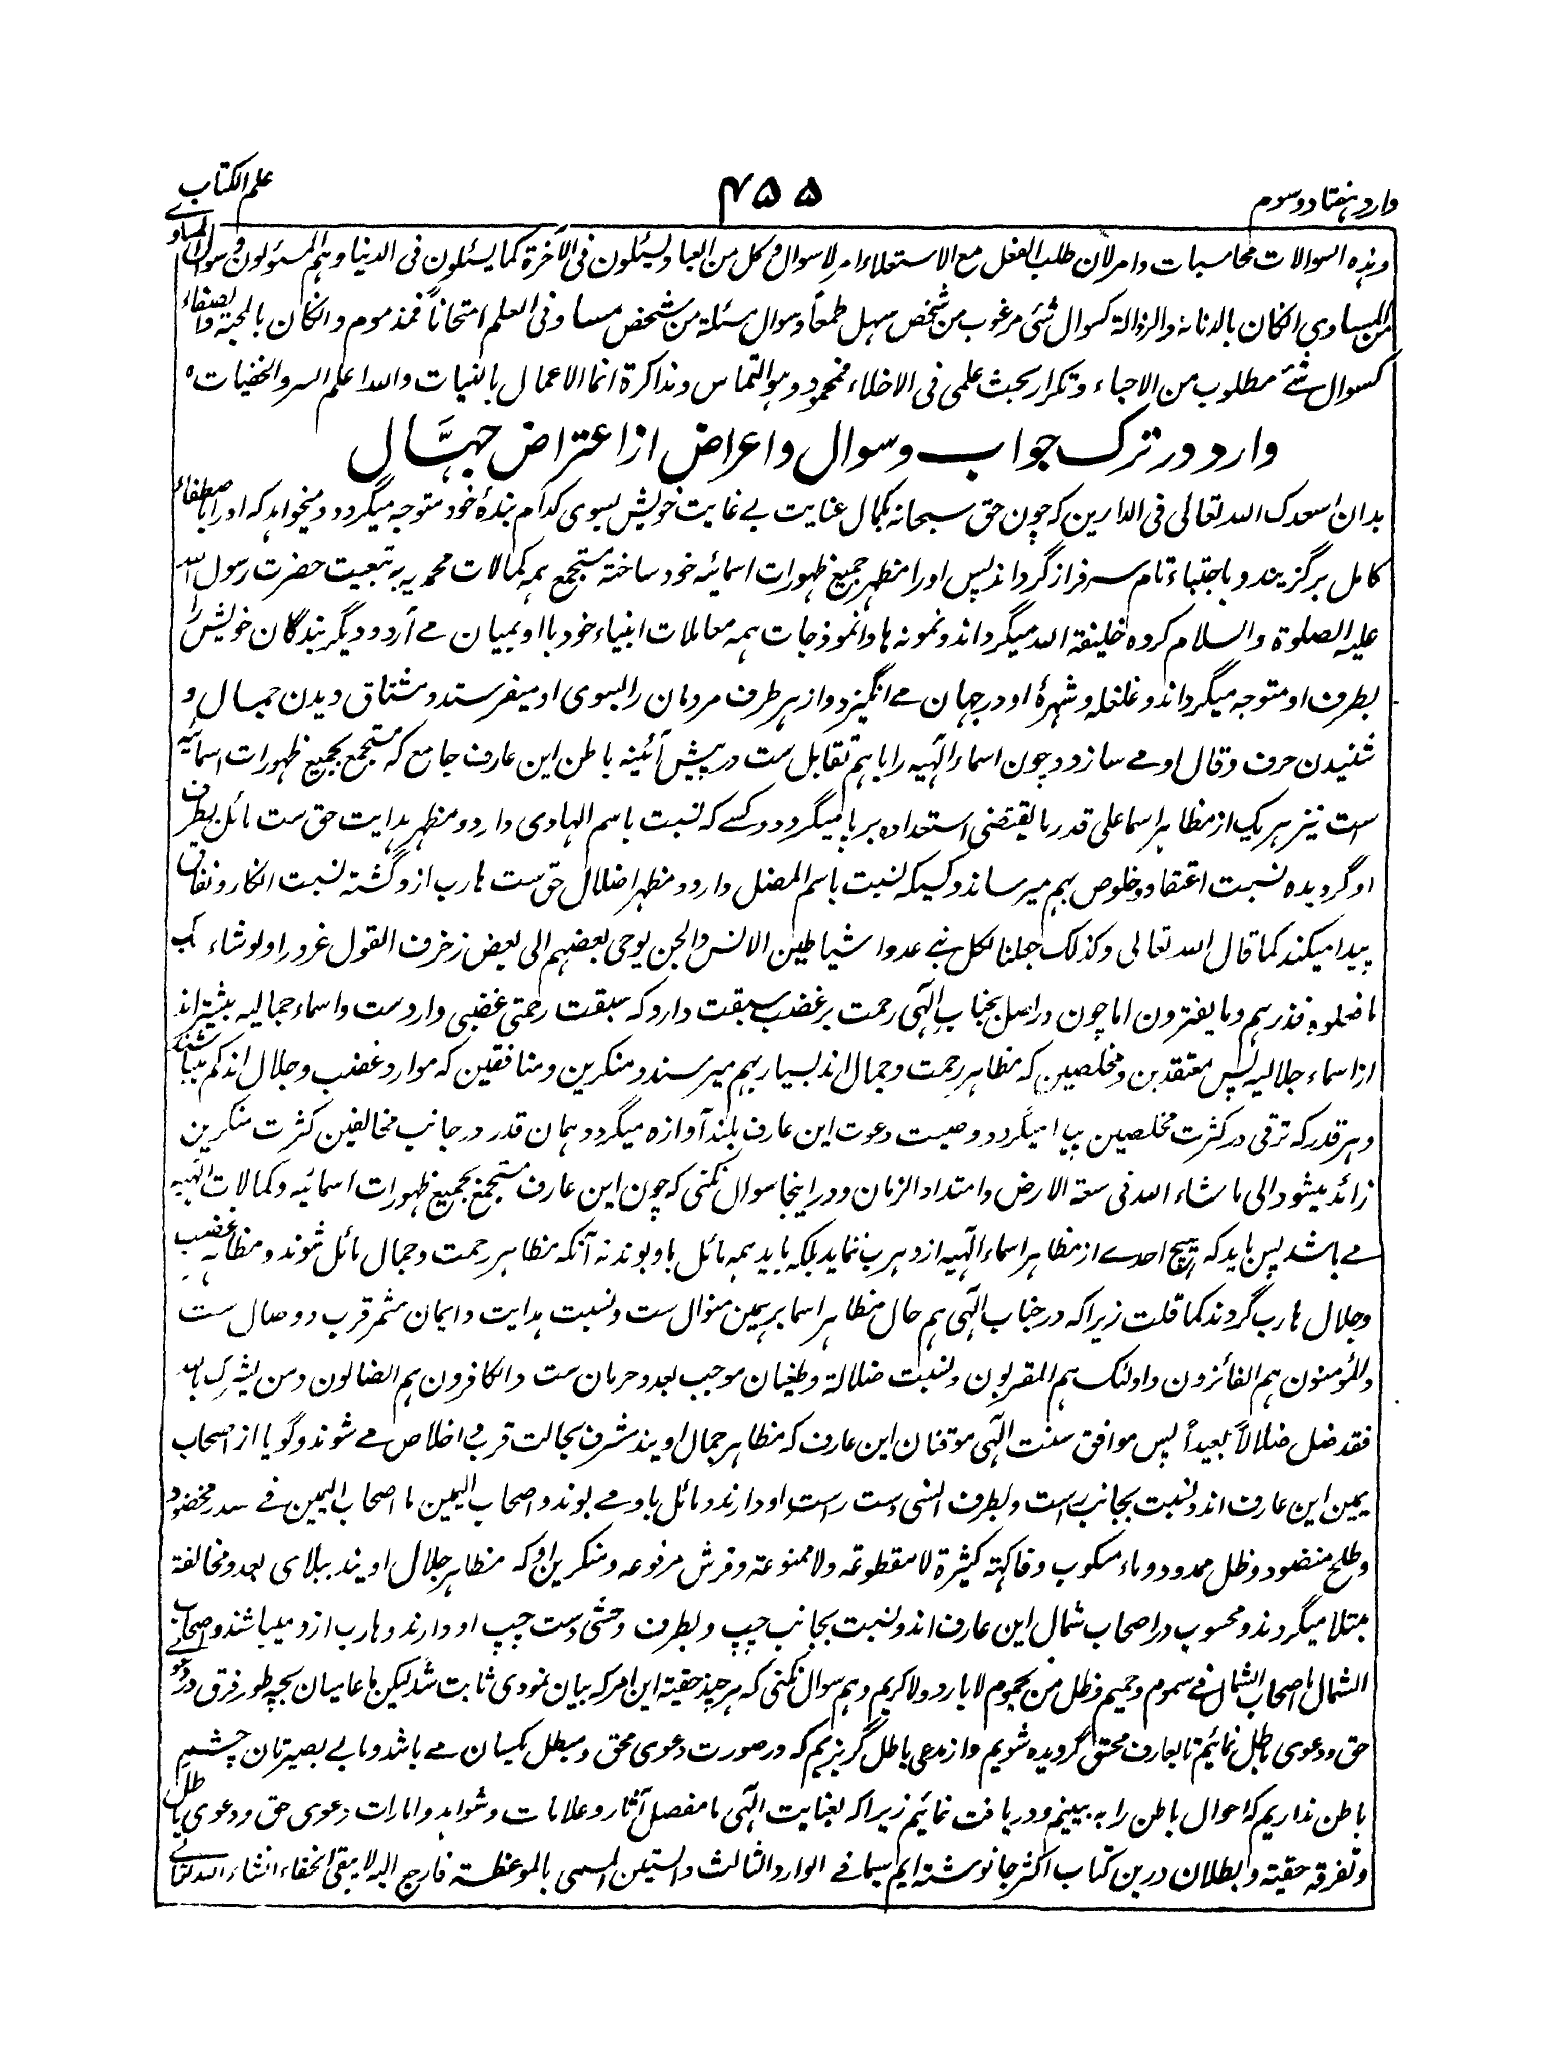 وارد ہفتاد و سوم ۴۵۵ علم الکتاب
وہذہ السوالات محاسبات و امر لان طلب الفعل مع الاستعلاء امر لا سوال و کل من العباد یسئلون فی الآخرة کما یسئلون فی الدنیا و ہم المسئولون و سوال المساوی
من المساوی ان کان بالدنائة و الرذالة کسوال شئ مرغوب من شخص سہل طمعاً و سوال مسئلة من شخص مساو فی العلم امتحاناً فمذموم و ان کان بالمحبة و الصفاء
کسوال شئے مطلوب من الاحباء و تکرار بحث علمی فی الاخلاء فمحمود و ہو التماس و مذاکرة انما الاعمال بالنیات و اللہ اعلم السر و الخفیات ٥
وارد در ترک جواب و سوال و اعراض از اعتراض جہّال
بدان اسعدک اللہ تعالی فی الدارین کہ چون حق سبحانہ بکمال عنایت بے غایت خویش بسوی کدام بندۂ خود متوجہ میگردد و میخواہد کہ او را باصطفاء
کامل برگزیند و باجتباء تام سرفراز گرداند پس او را مظہر جمیع ظہورات اسمائیہ خود ساختہ مستجمع ہمہ کمالات محمدیہ بہ تبعیت حضرت رسول اللہ
علیہ الصلوة والسلام کردہ خلیفة اللہ میگرداند و نمونہ ہا و انموذجات ہمہ معاملات انبیاء خود با او بمیان مے آرد و دیگر بندگان خویش را
بطرف او متوجہ میگرداند و غلغلہ و شہرۂ او در جہان مے انگیزد و از ہر طرف مردمان را بسوی او میفرستد و مشتاق دیدن جمال و
شنیدن حرف و قال او مے سازد و چون اسماء الٰہیہ را باہم تقابل ست در پیش آئینہ باطن این عارف جامع کہ مستجمع بجمیع ظہورات اسمائیہ
است نیز ہر یک از مظاہر اسما علی قدر ما یقتضی استعدادہ برپا میگردد و کسے کہ نسبت باسم الہادی دارد و مظہر ہدایت حق ست مائل بطرف
او گردیدہ نسبت اعتقاد و خلوص بہم میرساند و کسیکہ نسبت باسم المضل دارد و مظہر اضلال حق ست ہارب ازو گشتہ نسبت انکار و نفاق
پیدا میکند کما قال اللہ تعالی و کذلک جعلنا لکل نبے عدوا شیاطین الانس والجن یوحی بعضہم الی بعض زخرف القول غرورا ولو شاء ربک
ما فعلوہ فذرہم وما یفترون اما چون در اصل بجناب الٰہی رحمت بر غضب سبقت دارد کہ سبقت رحمتی غضبی وارد ست و اسماء جمالیہ بیشتر اند
از اسماء جلالیہ پس معتقدین و مخلصین کہ مظاہر رحمت و جمال اند بسیار بہم میرسند و منکرین و منافقین کہ موارد غضب و جلال اند کم میباشند
و ہر قدر کہ ترقی در کثرت مخلصین پیدا میگردد و صیت دعوت این عارف بلند آوازہ میگردد ہمان قدر در جانب مخالفین کثرت منکرین
زائد میشود الی ما شاء اللہ فی سعة الارض و امتداد الزمان و در اینجا سوال نکنی کہ چون این عارف مستجمع بجمیع ظہورات اسمائیہ و کمالات الٰہیہ
مے باشد پس باید کہ ہیچ احدے از مظاہر اسماء الٰہیہ ازو ہرب نماید بلکہ باید ہمہ مائل باو بوند نہ آنکہ مظاہر رحمت و جمال مائل شوند و مظاہر غضب
و جلال ہارب گردند کما قلت زیرا کہ در جناب الٰہی ہم حال مظاہر اسما بر ہمین منوال ست و نسبت ہدایت و ایمان مثمر قرب و وصال ست
و المؤمنون ہم الفائزون و اولئک ہم المقربون و نسبت ضلالة و طغیان موجب بعد و حرمان ست و الکافرون ہم الضالون و من یشرک باللہ
فقد ضل ضلالاً بعیداً پس موافق سنت الٰہی موقنان این عارف کہ مظاہر جمال اویند مشرف بحالت قرب و اخلاص مے شوند و گویا از اصحاب
یمین این عارف اند و نسبت بجانب راست و بطرف انسی دست راست او دارند و مائل باو مے بوند و اصحاب الیمین ما اصحاب الیمین فے سدر مخضود
و طلح منضود و ظل ممدود و ماء مسکوب و فاکہة کثیرة لا مقطوعة ولا ممنوعة و فرش مرفوعہ و منکرین او کہ مظاہر جلال اویند ببلای بعد و مخالفة
مبتلا میگردند و محسوب در اصحاب شمال این عارف اند و نسبت بجانب چپ و بطرف وحشی دست چپ او دارند و ہارب ازو میباشند و اصحاب
الشمال ما اصحاب الشمال فے سموم و حمیم و ظل من یحموم لا بارد ولا کریم و ہم سوال نکنی کہ ہر چند حقیة این امر کہ بیان نمودی ثابت شد لیکن ما عامیان بچہ طور فرق در دعوی
حق و دعوی باطل نمائیم تا بعارف محقق گرویدہ شویم و از مدعی باطل گریزیم کہ در صورت دعوی محق و مبطل یکسان مے باشد و ما بے بصیرتان چشم
باطن نداریم کہ احوال باطن را بہ بینیم و دریافت نمائیم زیرا کہ بعنایت الٰہی ما مفصل آثار و علامات و شواہد و امارات دعوی حق و دعوی باطل
و تفرقہ حقیة و بطلان درین کتاب اکثر جا نوشتہ ایم سیما فے الوارد الثالث و الستین المسمی بالموعظة فارجع الیہ لا یبقی الخفاء انشاء اللہ تعالے